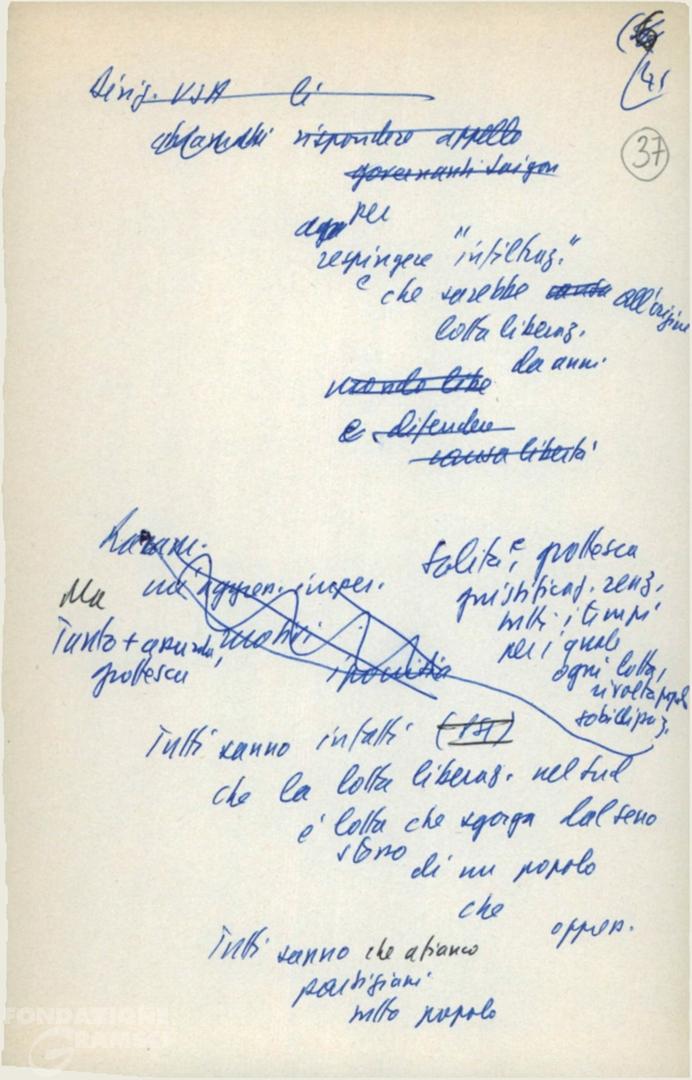 37
Dirig. USA li
chiamati rispondere appello
governanti Saigon
per
respingere "infiltraz."
che sarebbe causa all'origine
lotta liberaz.
da anni
mondo libe
e difendere
causa libertà
Ma
Tanto + assurda,
grottesca
motivi
Solita, grottesca
giustificaz. reaz.
tutti i tempi
per i quali
ogni lotta,
rivolta popol
sobillaz.
Tutti sanno infatti
che la lotta liberaz. nel Sud
è lotta che sgorga dal seno
stesso
di un popolo
che
oppres.
Tutti sanno che a fianco
partigiani
tutto popolo
FONDAZIONE
GRAMSCI